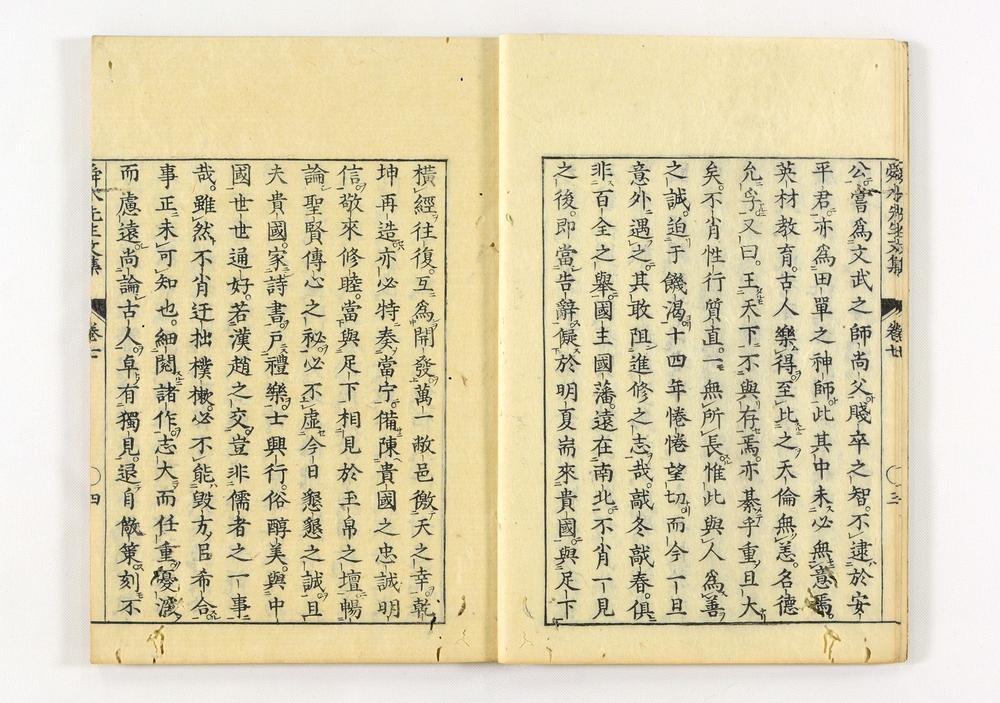 舜水先生文集 卷七 三
公嘗爲文武之師尚父賤卒之智不逮於安
平君亦爲田單之神師此其中未必無意焉
英材教育古人樂得至此之天倫無恙名德
允孚又曰王天下不與存焉亦綦乎重且大
矣不肖性行質直一無所長惟此與人爲善
之誠迫于饑渴十四年惓惓望切而今一旦
意外遇之其敢阻進修之志哉敲冬敲春俱
非百全之舉國主國藩遠在南北不肖一見
之後即當告辭儗於明夏耑來貴國與足下
橫經往復互爲開發萬一敝邑徼天之幸乾
坤再造亦必特奏當宁備陳貴國之忠誠明
信敬來修睦當與足下相見於玉帛之壇暢
論聖賢傳心之秘必不虛今日懇懇之誠且
夫貴國家詩書戶禮樂士興行俗醇美與中
國世世通好若漢趙之交豈非儒者之一事
哉雖然不肖迂拙樸樕必不能毀方㠯希合
事正未可知也細閱諸作志大而任重憂深
而慮遠尚論古人卓有獨見退自儆策刻不
舜水先生文集 卷七 四